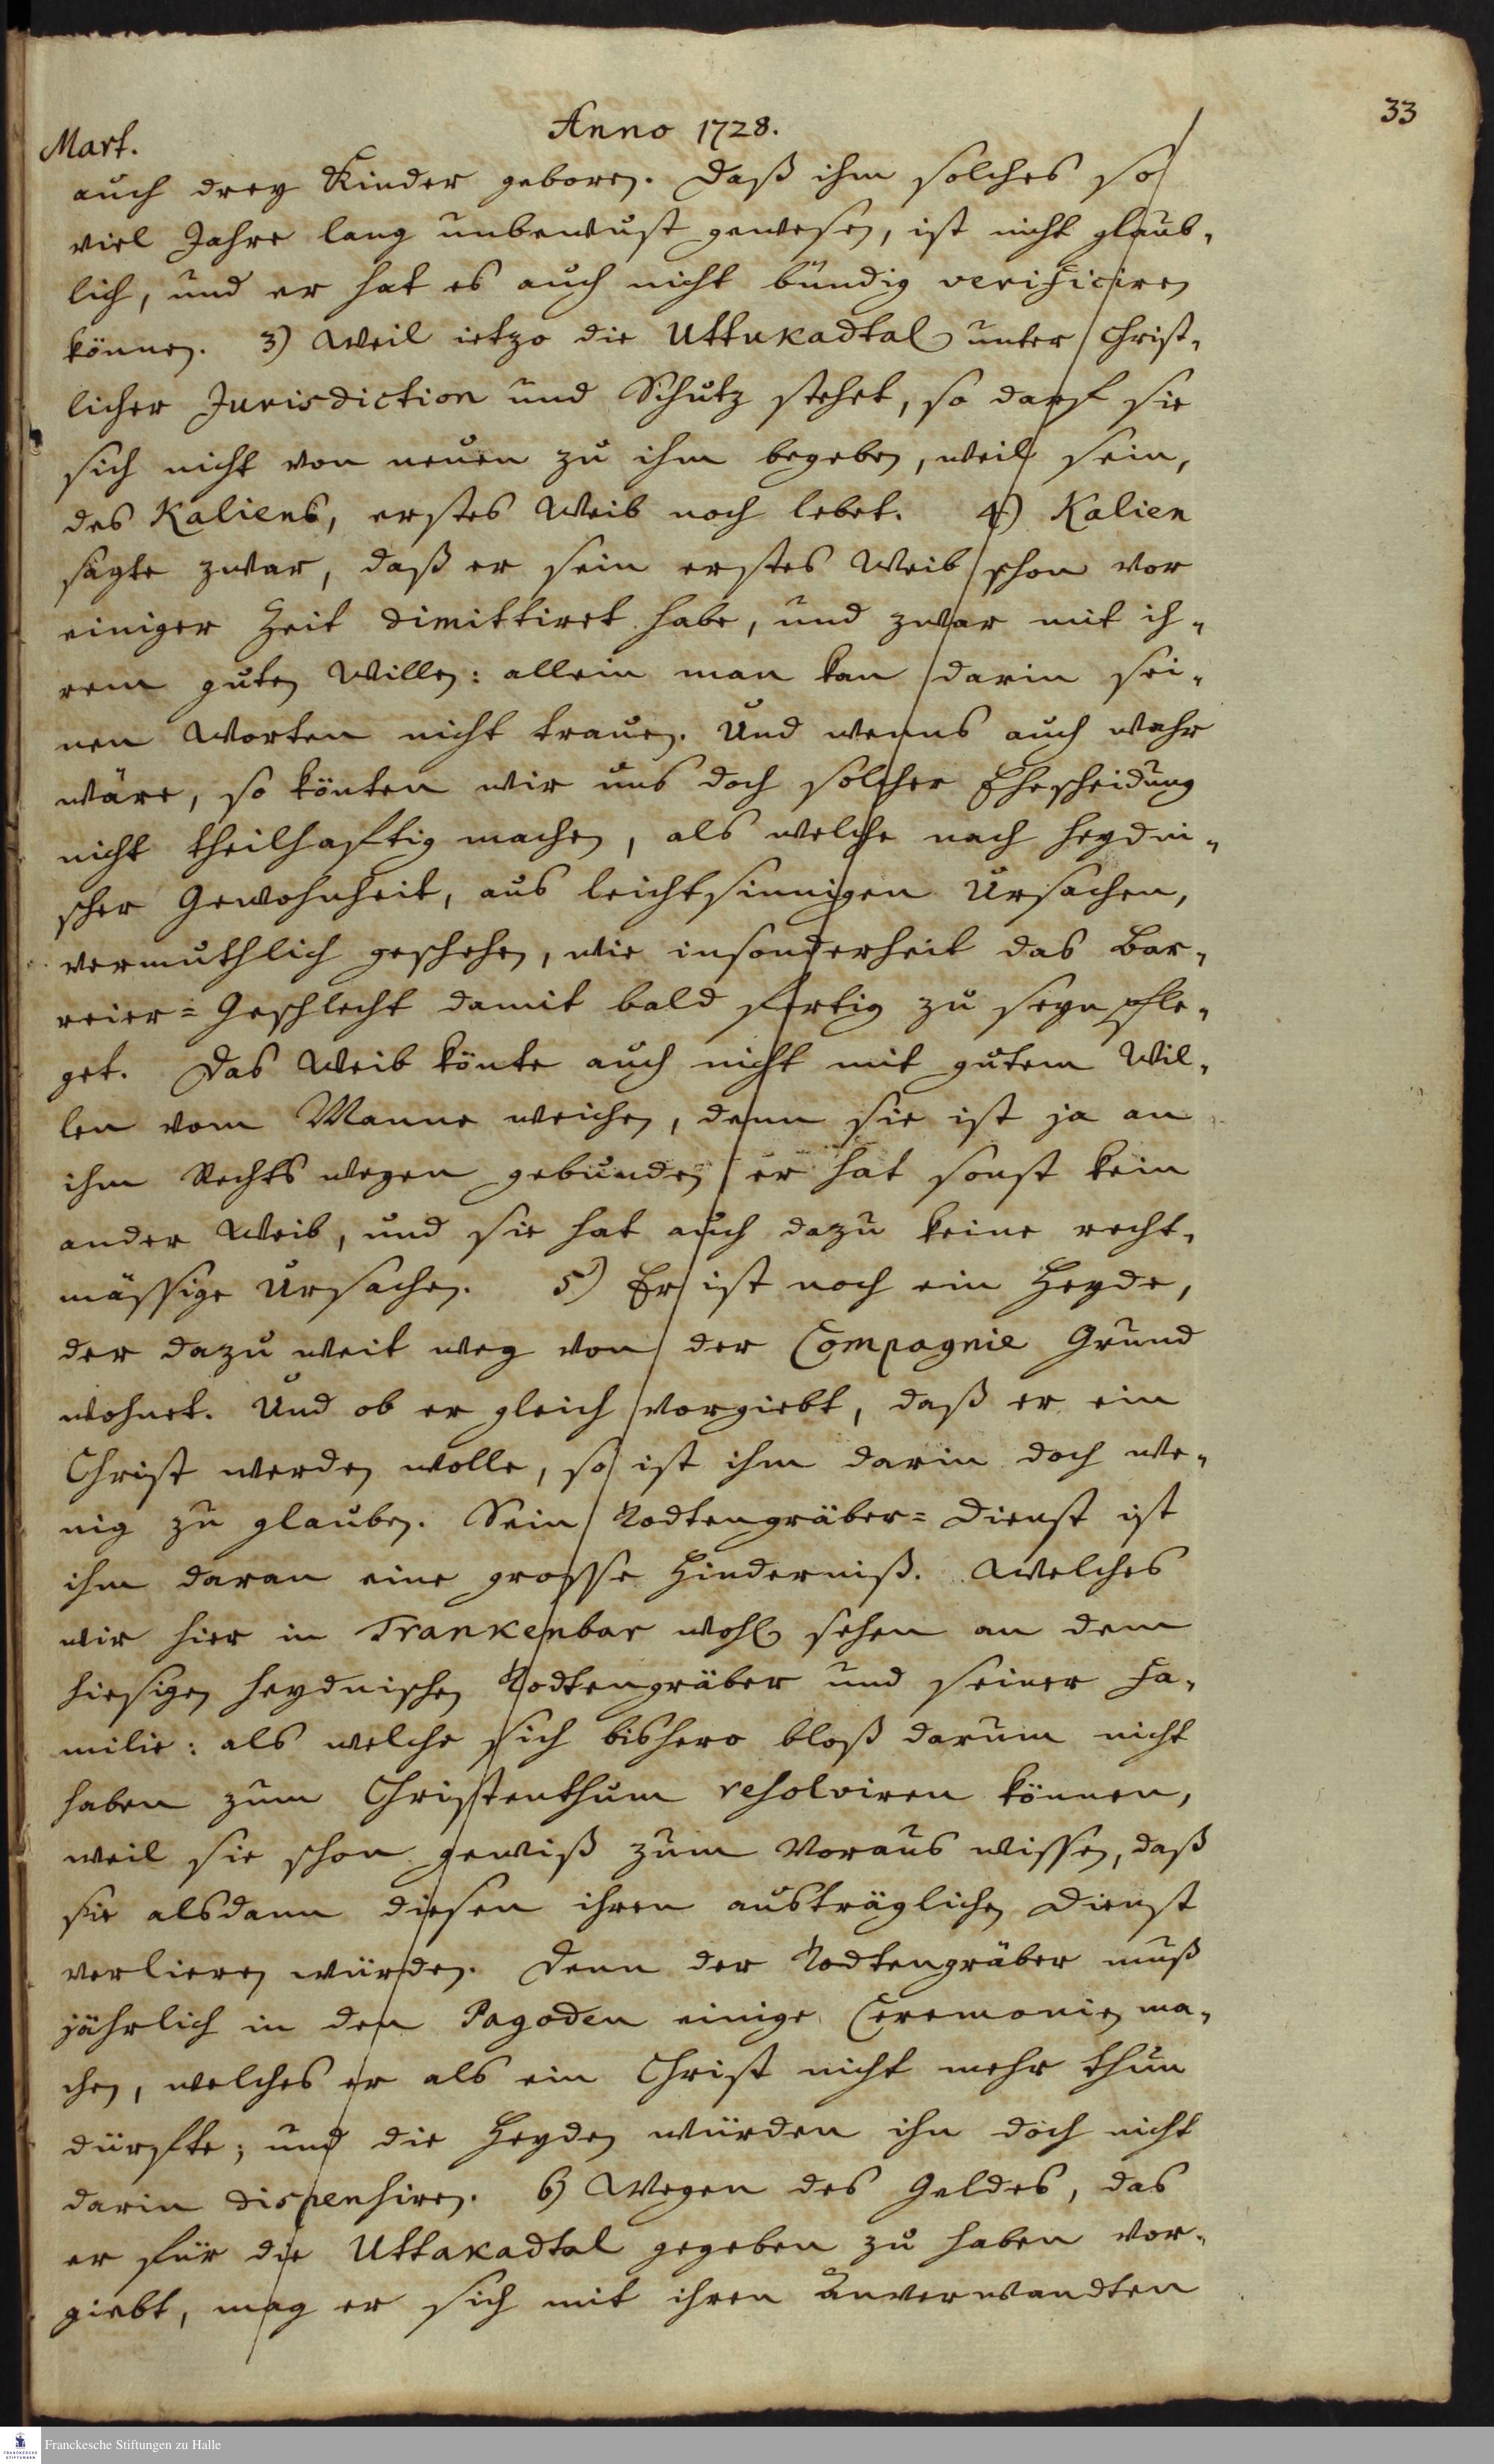 33
Anno 1728.
Mart.
auch drey Kinder geboren. Daß ihm solches so
viel Jahre lang unbewust gewesen, ist nicht glaub-
lich, und er hat es auch nicht bündig verificiren
können. 3) Weil ietzo die Uttukadtal unter Christ-
licher Jurisdiction und Schutz stehet, so darf sie
sich nicht von neuen zu ihm begeben, weil sein,
des Kaliens, erstes Weib noch lebet. 4) Kalien
sagte zwar, daß er sein erstes Weib schon vor
einiger Zeit dimittiret habe, und zwar mit ih-
rem guten Willen: allein man kan darin sei-
nen Worten nicht trauen. Und wenns auch wahr
wäre, so könten wir uns doch solcher Ehescheidung
nicht theilhafftig machen, als welche nach heydni-
scher Gewohnheit, aus leichtsinnigen Ursachen,
vermuthlich geschehen, wie insonderheit das Bar-
reier-Geschlecht damit bald fertig zu seyn pfle-
get. Das Weib könte auch nicht mit gutem Wil-
len vom Manne weichen, denn sie ist ja an
ihm Rechts wegen gebunden er hat sonst kein
ander Weib, und sie hat auch dazu keine recht-
mässige Ursachen. 5) Er ist noch ein Heyde,
der dazu weit weg von der Compagnie Grund
wohnet. Und ob er gleich vorgiebt, daß er ein
Christ werden wolle, so ist ihm darin doch we-
nig zu glauben. Sein Todtengräber-Dienst ist
ihm daran eine grosse Hinderniß. Welches
wir hier in Trankenbar wohl sehen an dem
hiesigen heydnischen Todtengräber und seiner Fa-
milie: als welche sich bishero bloß darum nicht
haben zum Christenthum resolviren können,
weil sie schon gewiß zum Voraus wissen, daß
sie alsdann diesen ihren austräglichen Dienst
verlieren würden. Denn der Todtengräber muß
jährlich in den Pagoden einige Ceremonien ma-
chen, welches er als ein Christ nicht mehr thun
dürffte; und die Heyden würden ihn doch nicht
darin dispensiren. 6) Wegen des Geldes, das
er für die Uttakadtal gegeben zu haben vor-
giebt, mag er sich mit ihren Anverwandten
Franckesche Stiftungen zu Halle